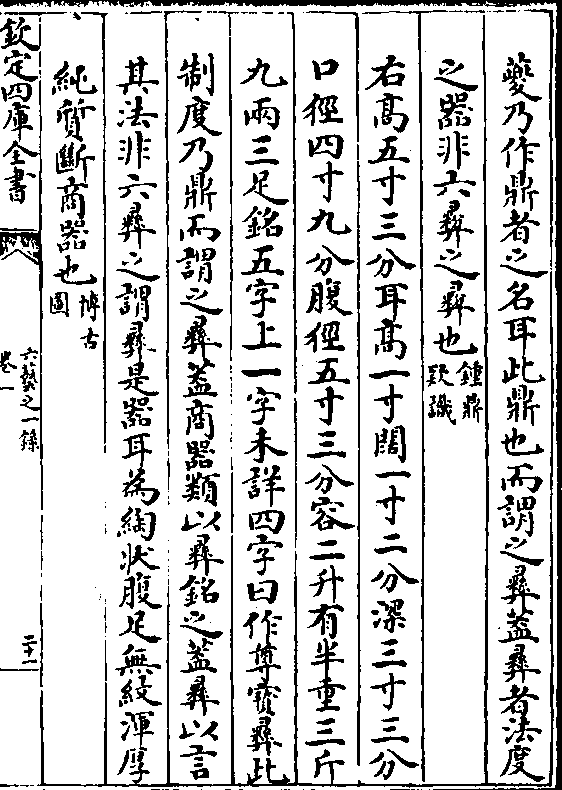 夔乃作鼎者之名耳此鼎也而謂之彞葢彞者法度
之器非六彞之彞也鍾鼎
款識
右髙五寸三分耳髙一寸闊一寸二分深三寸三分
口徑四寸九分腹徑五寸三分容二升有半重三斤
九兩三足銘五字上一字未詳四字曰作尊寳彞此
制度乃鼎而謂之彞葢商器類以彞銘之葢彞以言
其法非六彞之謂彞是器耳為綯狀腹足無紋渾厚
純質斷商器也博古
圖
欽定四庫全書
六藝之一錄
卷一
二十一